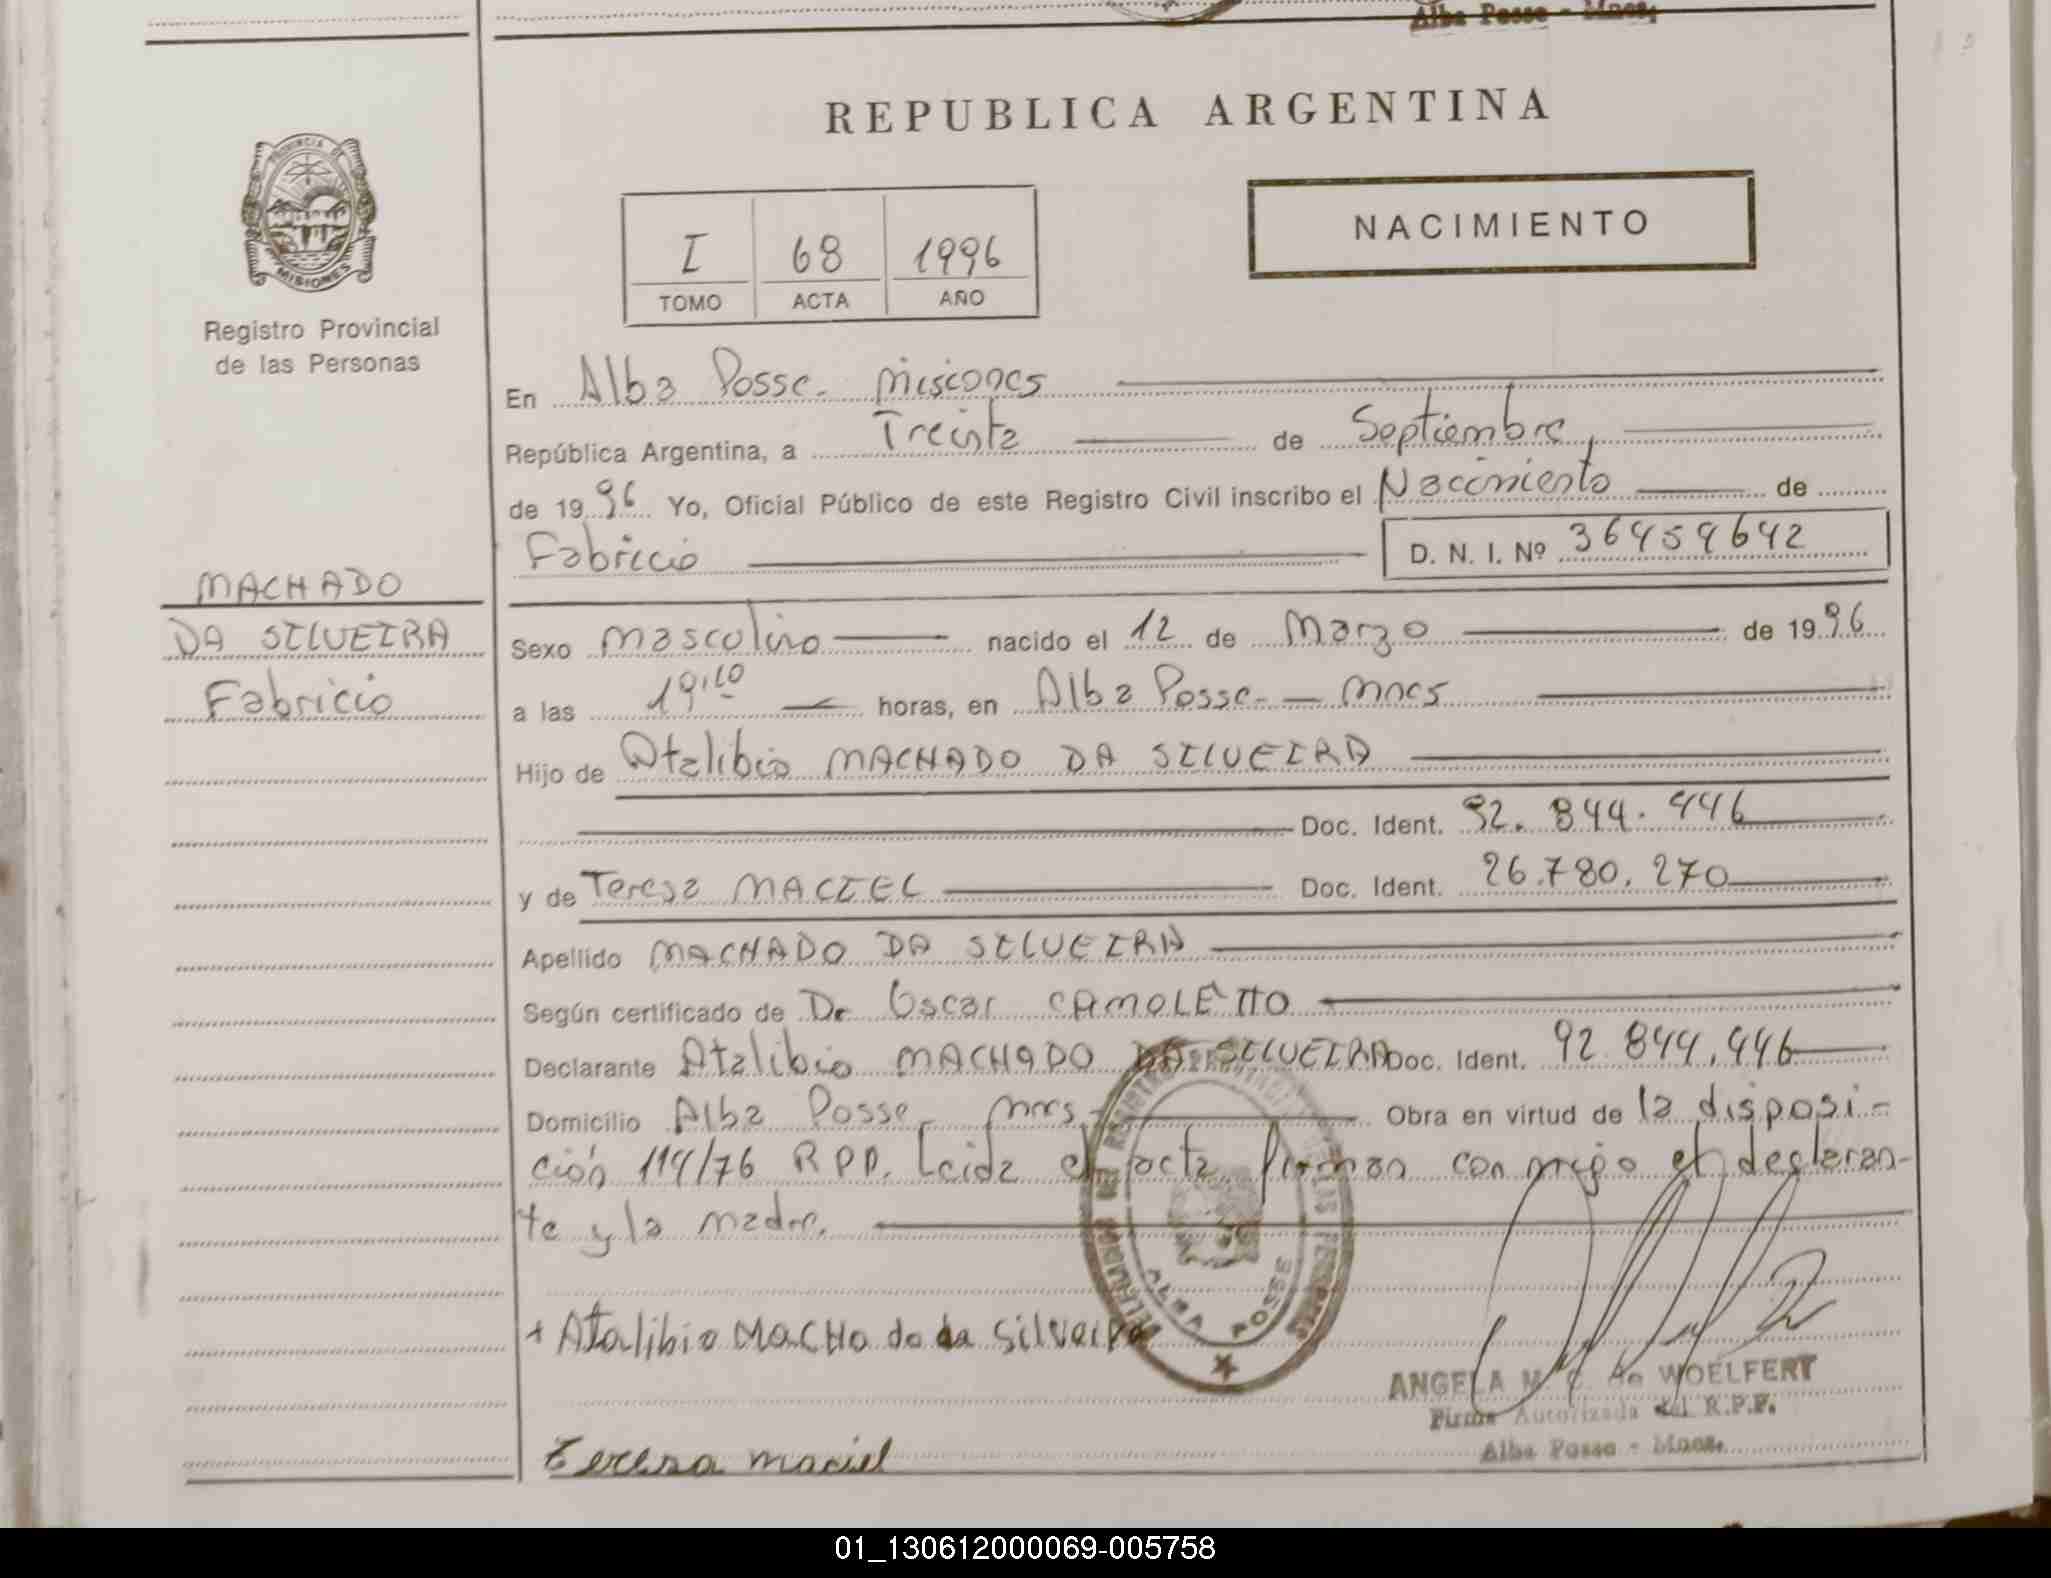 Alba Posse - Mnes;
REPUBLICA ARGENTINA
PROVINCIA DE
MISIONES
Registro Provincial
de las Personas
NACIMIENTO
I 68 1996
TOMO ACTA AÑO
En Alba Posse. Misiones
República Argentina, a Treinta de Septiembre,
de 1996 Yo, Oficial Público de este Registro Civil inscribo el Nacimiento de
Fabricio D. N. I. Nº 36459642
MACHADO
DA SILVEIRA
Fabricio
Sexo Masculino nacido el 12 de Marzo de 1996
a las 19,10 horas, en Alba Posse - Mnes
Hijo de Atalibio MACHADO DA SILVEIRA
Doc. Ident. 92.844.446
y de Teresa MACIEL Doc. Ident. 26.780.270
Apellido MACHADO DA SILVEIRA
Según certificado de Dr Oscar CAMOLETTO
Declarante Atalibio MACHADO DA SILVEIRA Doc. Ident. 92.844.446
Domicilio Alba Posse Mnes. Obra en virtud de la disposi-
ción 114/76 RPP. Leida el acta firman con migo el declaran-
te y la madre.
ALBA POSSE
+ Atalibio Machado da Silveira
ANGELA M. de WOELFERT
Firma Autorizada del R.P.P.
Alba Posse - Mnes.
Teresa maciel
01_130612000069-005758